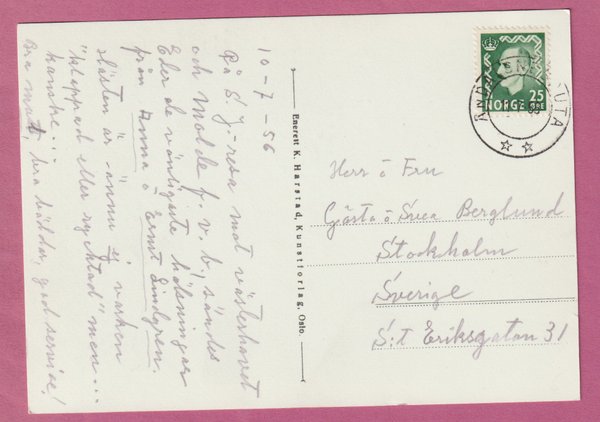 10-7-56
På S.J-resa mot västerhavet
och Molde f.v.b., sändes
Eder de vänligaste hälsningar
från Anna o Ernst Lindgren.
släkten är "ännu ej varken
"klappad eller nycktad" men...
kanske..
Bra mat, bra bäddar, god service!
Enerett K. Harstad, Kunstforlag, Oslo.
NORGE
25
ØRE
RUTA
Herr o Fru
Gösta o Svea Berglund
Stockholm
Sverige
S:t Eriksgatan 31